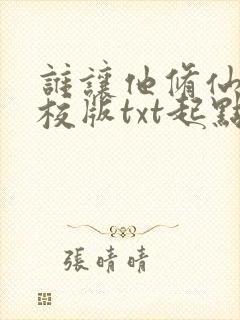 誰讓他脩仙
校版txt起點
張晴晴